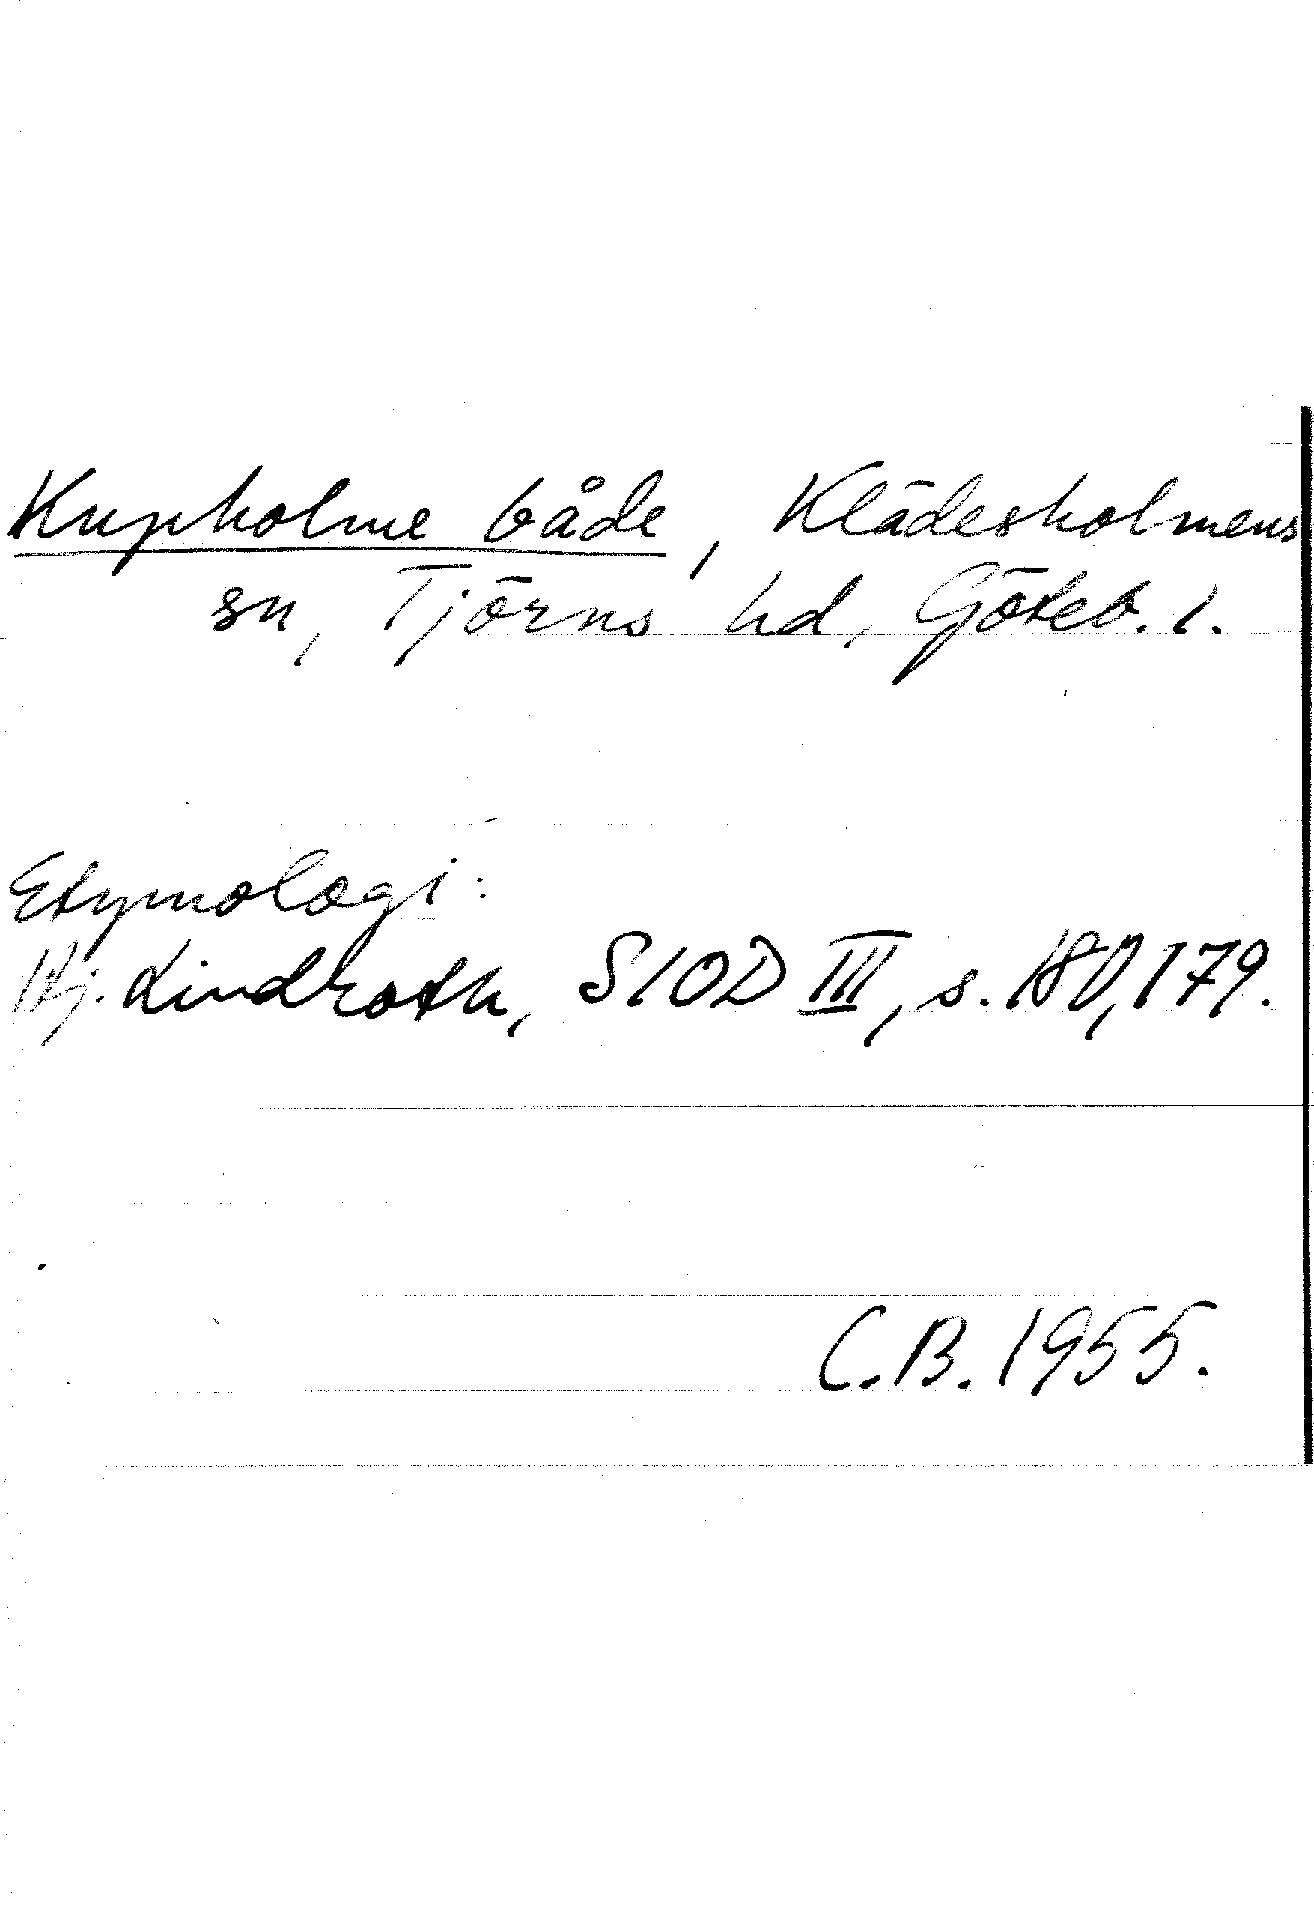 Kupholme både, Klädesholmens
sn, Tjörns hd, Göteb. l.
Etymologi:
Hj. Lindroth, SIOD III, s. 180, 179.
C.B. 1955.